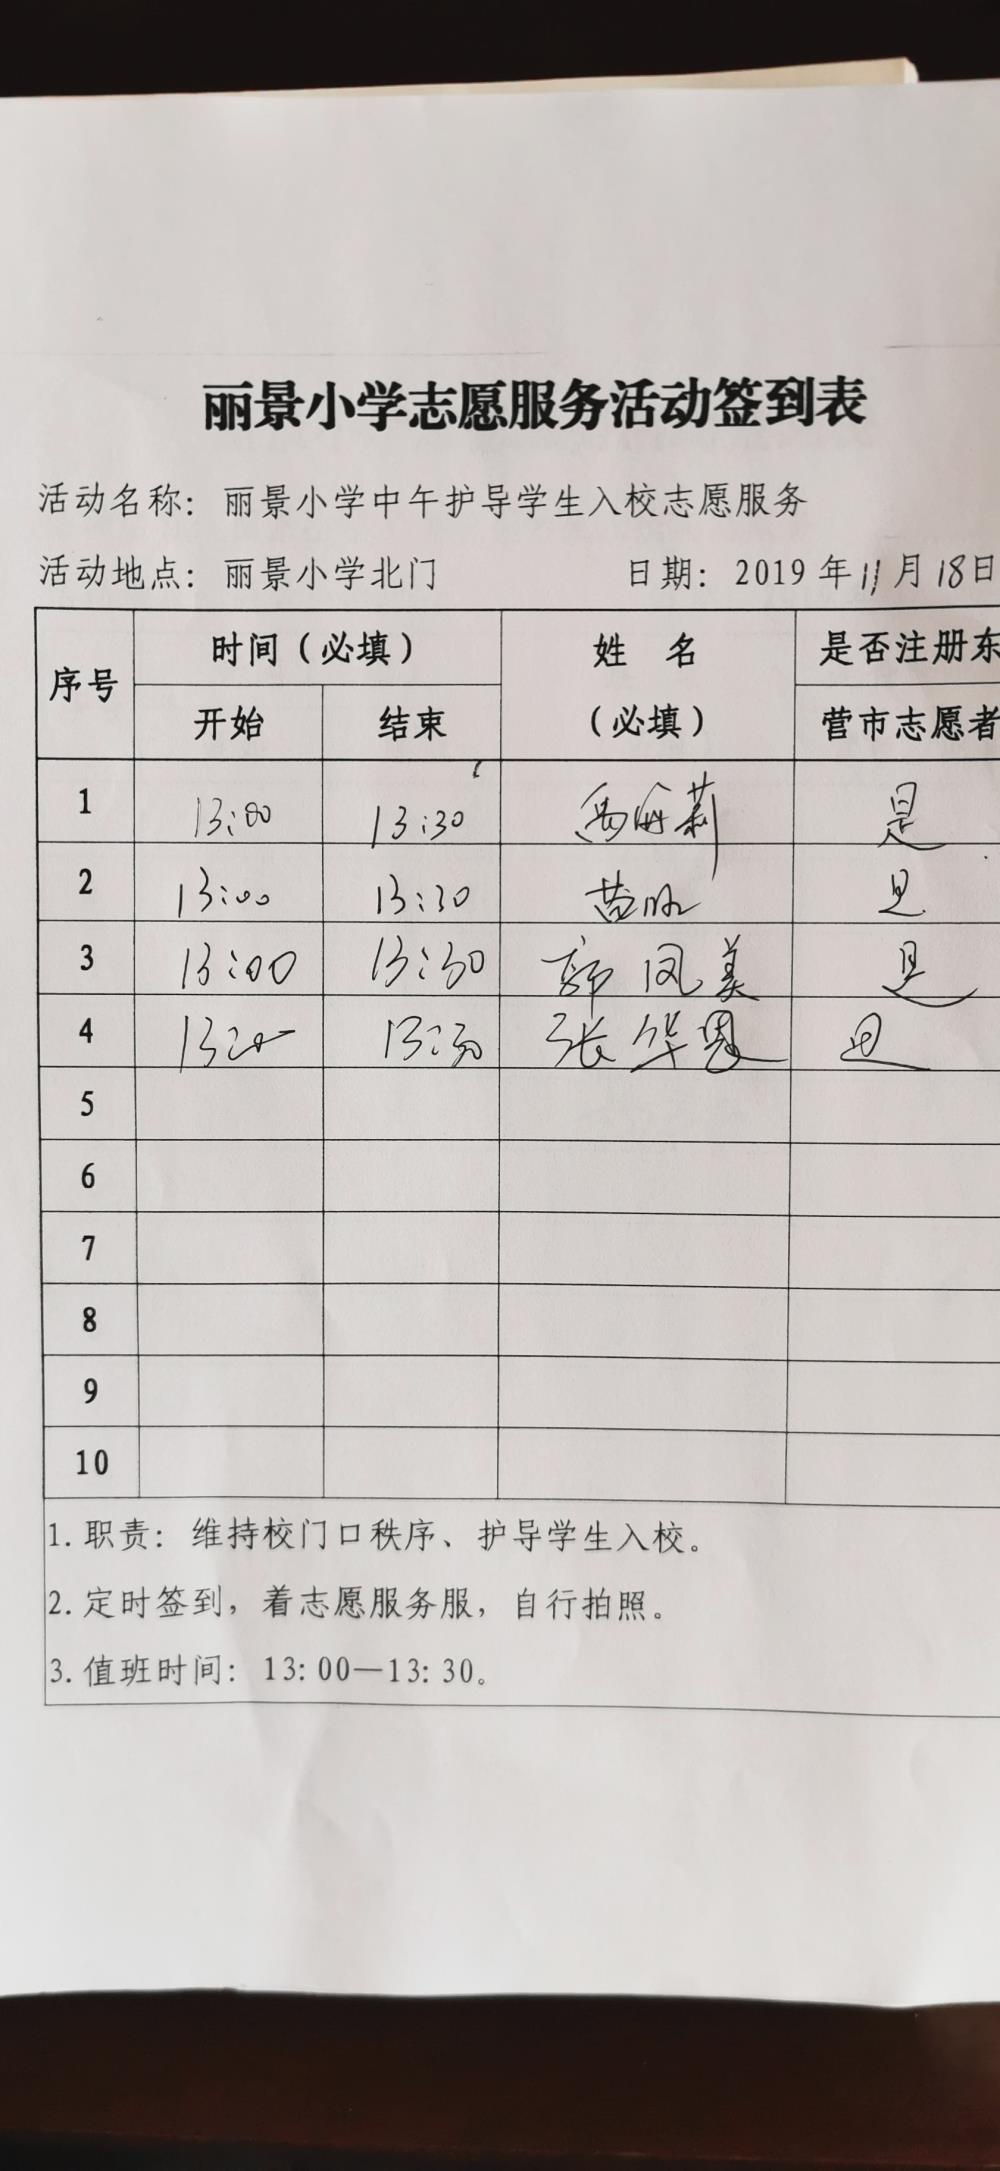 丽景小学志愿服务活动签到表
活动名称：丽景小学中午护导学生入校志愿服务
活动地点：丽景小学北门 日期：2019年11月18日
序号 时间（必填） 姓 名 是否注册东
开始 结束 （必填） 营市志愿者
1 13:00 13:30 是
2 13:00 13:30 苗 是
3 13:00 13:30 郭凤美 是
4 13:30 张华恩 是
5
6
7
8
9
10
1.职责：维持校门口秩序、护导学生入校。
2.定时签到，着志愿服务服，自行拍照。
3.值班时间：13:00—13:30。